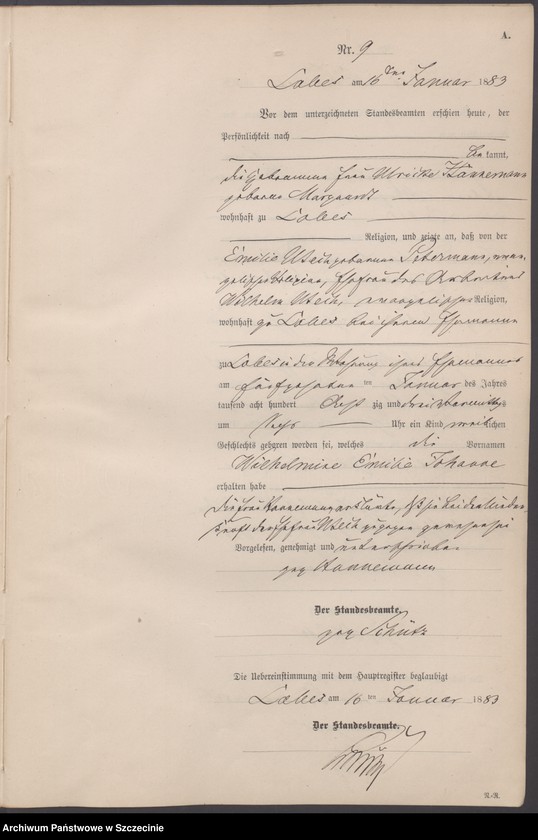 A.
Nr. 9
Labes am 16 ten Januar 1883
Vor dem unterzeichneten Standesbeamten erschien heute, der
Persönlichkeit nach
be kannt,
die Hebeamme Frau Ulrike Hannemann
geborene
wohnhaft zu Labes
Religion, und zeigte an, daß von der
Emilie Utech geborenen Petermann, evan-
gelischer Religion, Ehefrau des
Wilhelm Utech, evangelischer Religion,
wohnhaft zu Labes bei ihrem Ehemanne
zu Labes in der Wohnung ihres Ehemannes
am fünfzehnten ten Januar des Jahres
tausend acht hundert acht zig und drei Vormittags
um sechs Uhr ein Kind weib lichen
Geschlechts geboren worden sei, welches die Vornamen
Wilhelmine Emilie Johanne
erhalten habe
die Frau Hannemann erklärte, daß sie bei der Nieder-
kunft der Ehefrau Utech zugegen gewesen sei
Vorgelesen, genehmigt und unterschrieben
gez Hannemann
Der Standesbeamte.
gez Schütz
Die Uebereinstimmung mit dem Hauptregister beglaubigt
Labes am 16 ten Januar 1883
Der Standesbeamte.
Schütz
R.-R.
Archiwum Państwowe w Szczecinie